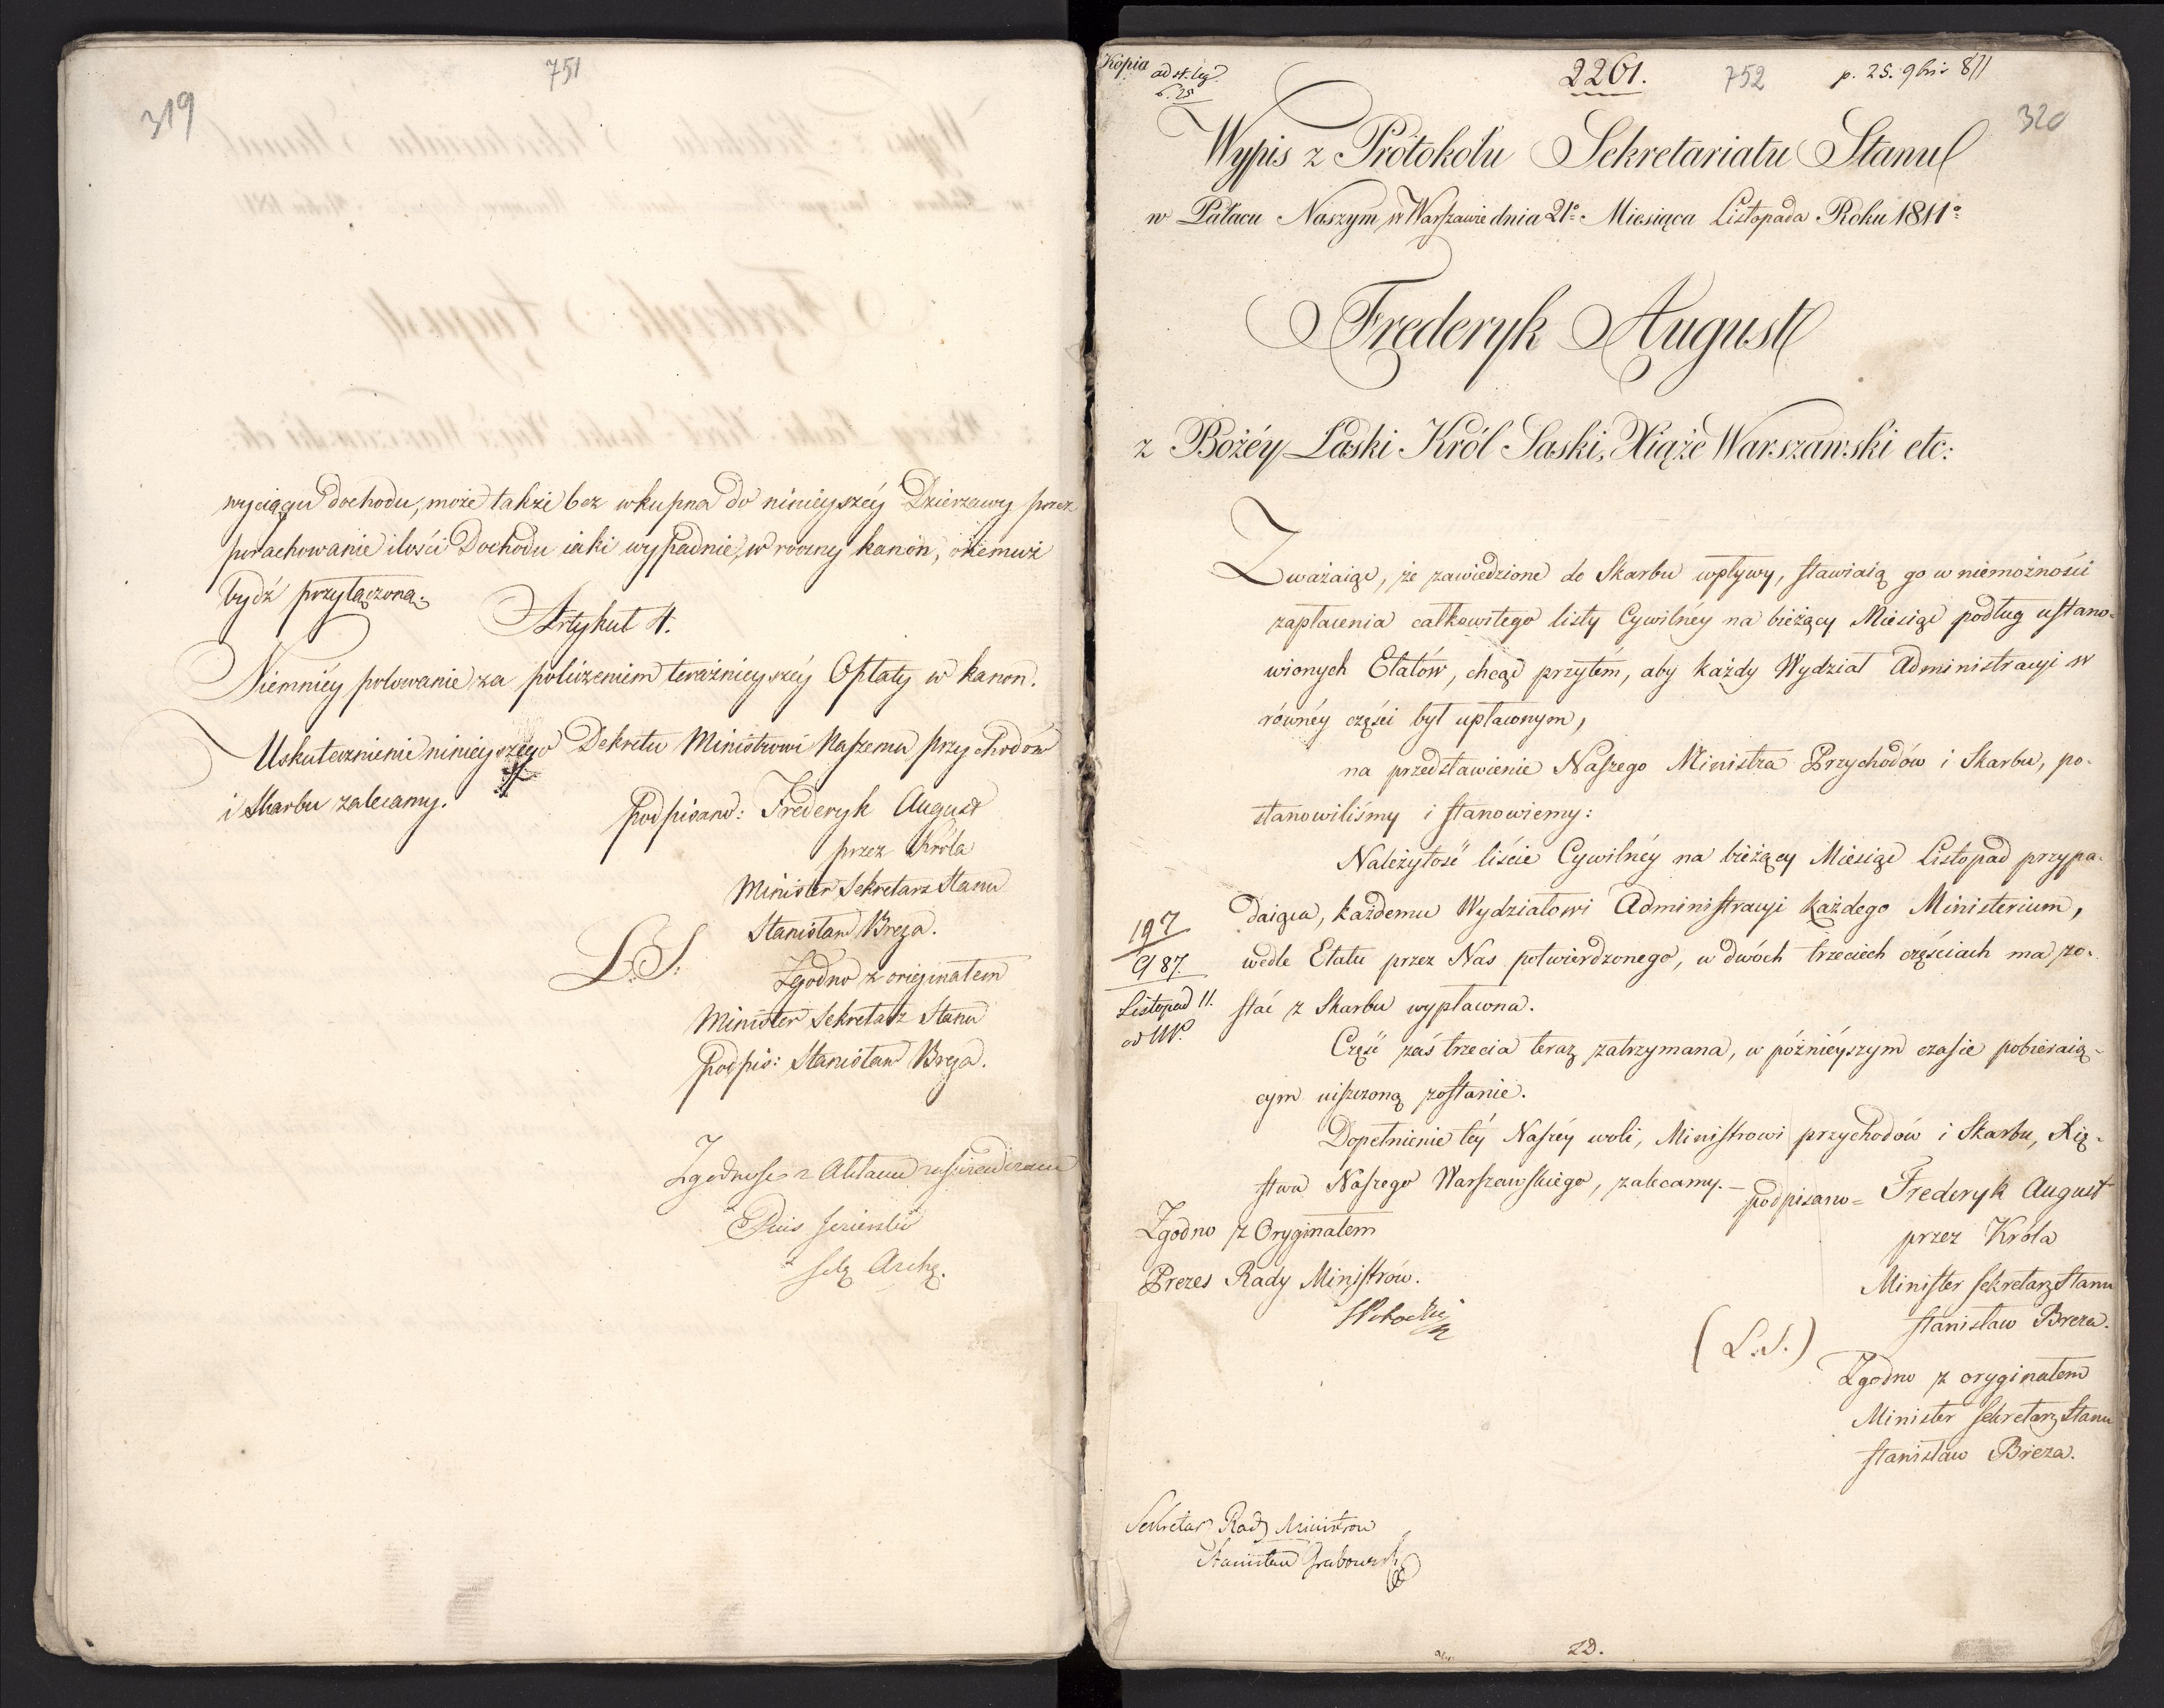 751
319
wyciągu dochodu, może także bez wkupna do ninieyszéy Dzierzawy przez
porachowanie ilości Dochodu iaki wypadnie, w roczny kanon, onemuż
bydź przyłączona.
Artykuł 4.
Niemniéy polowanie za policzeniem teraźnieyszéy Opłaty w kanon.
Uskutecznienie ninieyszego Dekretu Ministrowi Naszemu przychodów
i Skarbu zalecamy.
Podpisano: Frederyk August
przez Króla
Minister Sekretarz Stanu
Stanisław Breza.
L. S.
Zgodno z originałem
Minister Sekretarz Stanu
Podpis: Stanisław Breza.
Zgodność z Aktami
Sekr Arch.
Kopia
2261.
752
p. 25. 9bris 811
320
Wypis z Protokołu Sekretariatu Stanu
w Pałacu Naszym w Warszawie dnia 21o Miesiąca Listopada Roku 1811o
Frederyk August
z Bożéy Łaski Król Saski, Xiąże Warszawski etc:
Zważaiąc, że zawiedzione do Skarbu wpływy, stawiaią go w niemożności
zapłacenia całkowitego listy Cywilnéy na bieżący Miesiąc podług ustano-
wionych Etatów, chcąc przytém, aby każdy Wydział Administracyi w
równéy części był upłaconym,
na przedstawienie Naszego Ministra Przychodów i Skarbu, po-
stanowiliśmy i stanowiemy:
Należytość liście Cywilnéy na bieżący Miesiąc Listopad przypa-
daiąca, każdemu Wydziałowi Administracyi każdego Ministerium,
wedle Etatu przez Nas potwierdzonego, w dwóch trzeciech częściach ma zo-
stać z Skarbu wypłacona.
197
987.
Listopad 11.
Część zaś trzecia teraz zatrzymana, w późniéyszym czasie pobieraią-
cym uiszczoną zostanie.
Dopełnienie téy Naszéy woli, Ministrowi przychodów i Skarbu, Xię-
stwa Naszego Warszawskiego, zalecamy. –
podpisano = Frederyk August
przez Króla
Minister Sekretarz Stanu
Stanisław Breza.
(L. S.)
Zgodno z oryginałem
Minister Sekretarz Stanu
Stanisław Breza.
Zgodno z Oryginałem
Prezes Rady Ministrów.
Sekretarz Rady Ministrów
Stanisław Grabowski